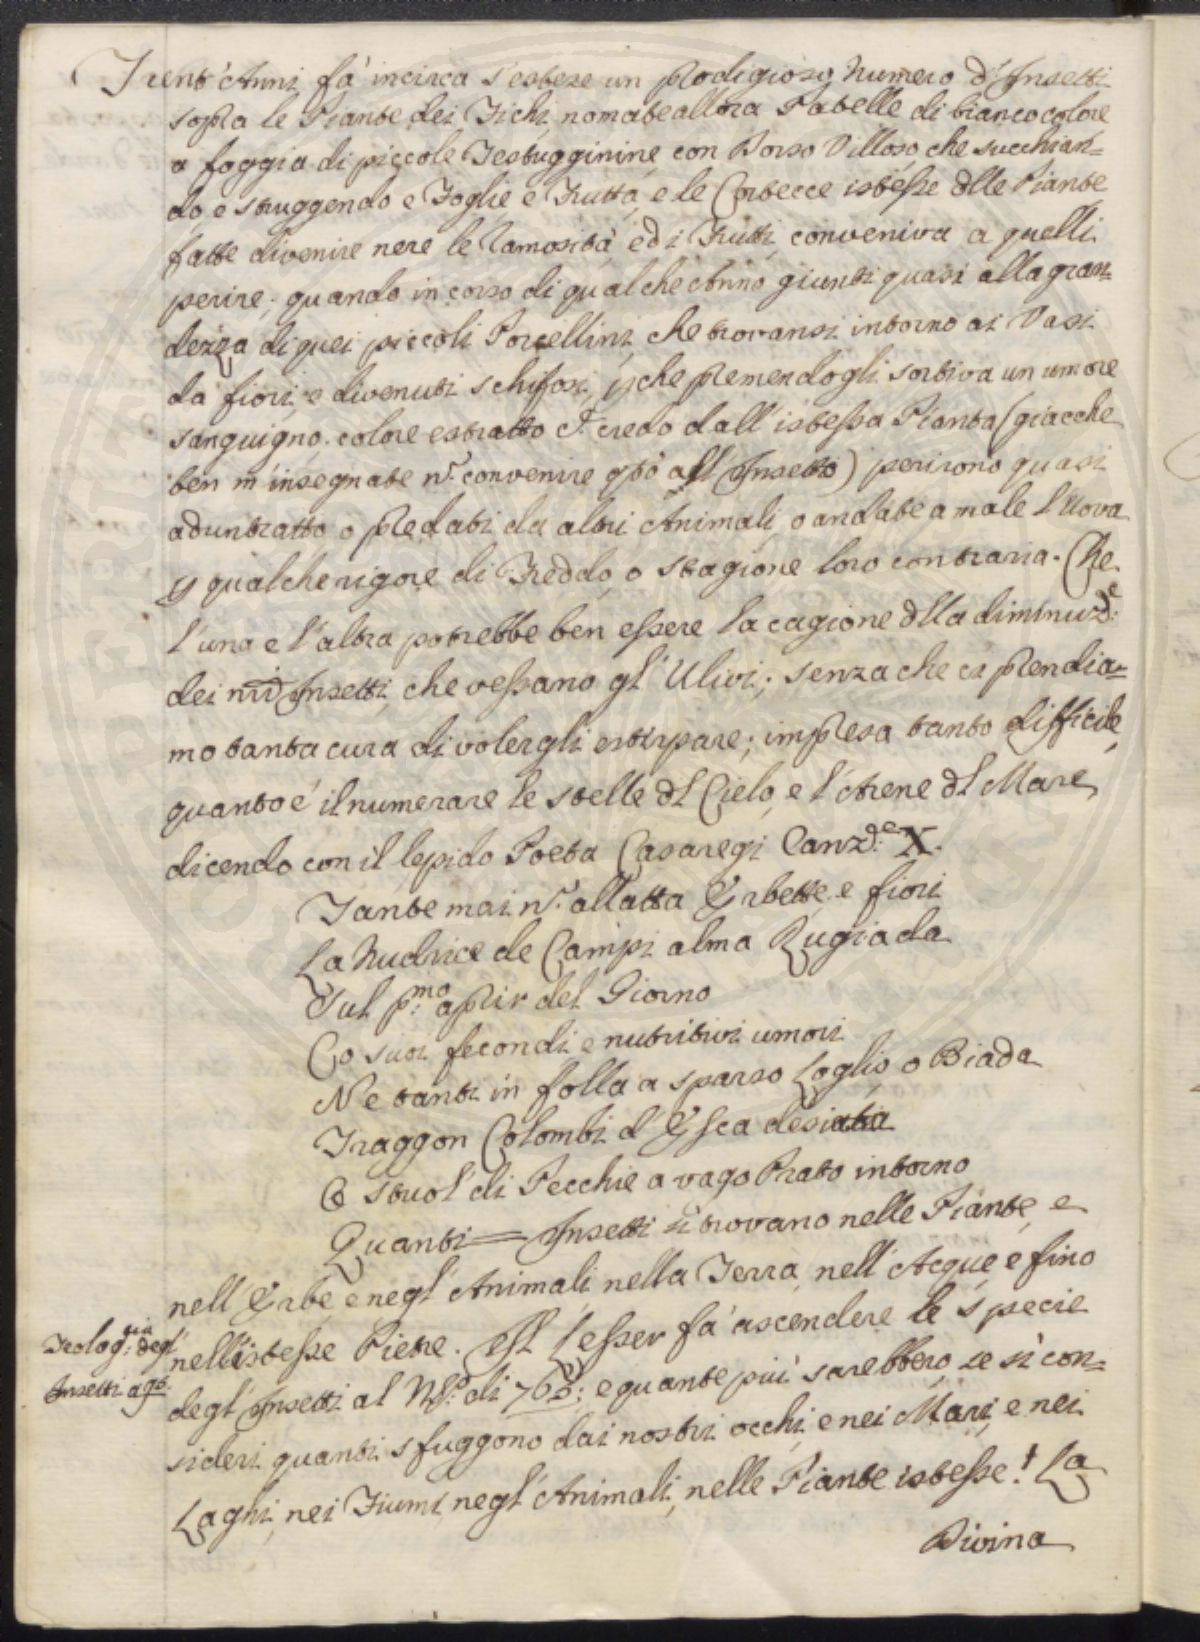 Trent'Anni fà incirca s'estese un prodigioso Numero d'Insetti
sopra le Piante dei Fichi, nomate allora Patelle di bianco colore
a foggia di piccole Testugginine con Dorso Villoso, che succhian=
do, e struggendo e Foglie e Frutta, e le Cortecce istesse dlle Piante
fatte divenire nere le Ramosità, ed i Frutti, conveniva a quelli
perire; quando in corso di qualche Anno giunti quasi alla gran=
dezza di quei piccoli Porcellini, che trovansi intorno ai Vasi
da fiori, e divenuti schifosi, che premendogli sortiva un umore
sanguigno, colore estratto credo dall'istessa Pianta (giacche
ben m'insegnate n. convenire qto all'Insetto) perirono quasi
aduntratto o predati da altri Animali, o andate a male l'Uova
qualche rigore di Freddo, o stagione loro contraria. Che
l'una e l'altra potrebbe ben essere la cagione dlla diminuz.e
dei Insetti, che vessano gl'Ulivi; senza che ci prendia=
mo tanta cura di volergli estirpare; impresa tanto difficile,
quanto è il numerare le stelle dl Cielo, e l'Arene dl Mare,
dicendo con il lepido Poeta Casaregi Canz.e X.
Tante mai n. allatta Erbette e fiori
La Nudrice de Campi alma Rugiada
Sul p.mo aprir del Giorno
Co suoi fecondi e nutritivi umori
Ne tanti in folla a sparso Loglio o Biada
Traggon Colombi d'Esca desiata
O stuol di Pecchie a vago Prato intorno
Quanti = Insetti si trovano nelle Piante, e
nell'Erbe, e negl'Animali, nella Terra, nell'Acque, e fino
nell'istesse Pietre. Lesser fà ascendere le specie
Teolog.gia degl'
Insetti
degl'Insetti al N.o di 765: e quante più sarebbero, se si con=
sideri quanti sfuggono dai nostri occhi, e nei Mari, e nei
Laghi, nei Fiumi, negl'Animali, nelle Piante istesse! La
Divina